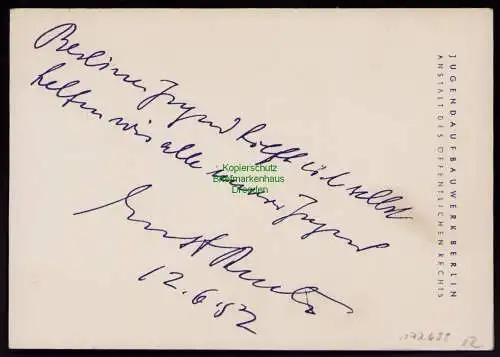 Berliner Jugend hilft sich selbst
helfen wir alle unserer Jugend
Ernst Reuter
12.6.52
JUGENDAUFBAUWERK BERLIN
ANSTALT DES ÖFFENTLICHEN RECHTS
Kopierschutz
Briefmarkenhaus
Dresden